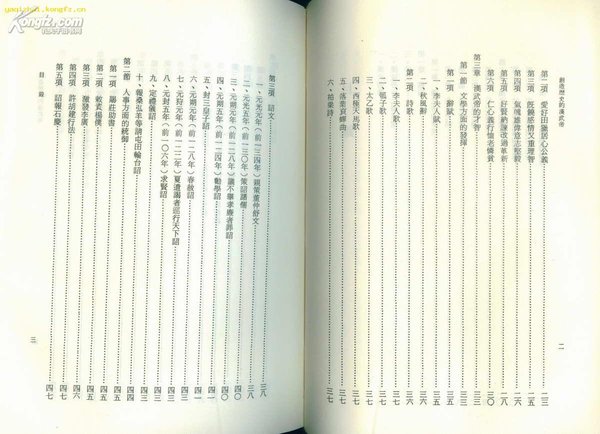 yaqizhai.kongfz.cn
Kongfz.com
孔夫子旧书网
創造歷史的漢武帝
二
第二項 愛好田獵居心公義……一三
第三項 既饒感情又重理智……一五
第四項 氣魄雄偉意志堅毅……一七
第五項 好賢納諫改過革新……一八
第六項 仁心義行憐老憐貧……三〇
第三章 漢武帝的才智……三三
第一節 文學方面的發揮……三三
第一項 辭賦……三三
一、李夫人賦……三三
二、秋風辭……三五
第二項 詩歌……三六
一、李夫人歌……三六
二、瓠子歌……三六
三、太乙歌……三七
四、西極天馬歌……三七
五、落葉哀蟬曲……三七
六、柏梁詩……三七
第三項 詔文……三八
一、元光元年(前一三四年)親策董仲舒文……三八
二、元光五年(前一三〇年)策詔諸儒……三八
三、元朔元年(前一二八年)議不舉孝廉者罪詔……四〇
四、元朔五年(前一二四年)勸學詔……四〇
五、封三皇子詔……四一
六、元朔元年(前一二八年)春赦詔……四一
七、元狩元年(前一二二年)夏遣謁者巡行天下詔……四二
八、元封五年(前一〇六年)求賢詔……四三
九、定禮儀詔……四三
十、報桑弘羊等請屯田輪台詔……四三
第二節 人事方面的統御……四四
第一項 賜莊助書……四四
第二項 敕責楊僕……四五
第三項 激發李廣……四五
第四項 許胡建行法……四六
第五項 詔報石慶……四七
目錄
三